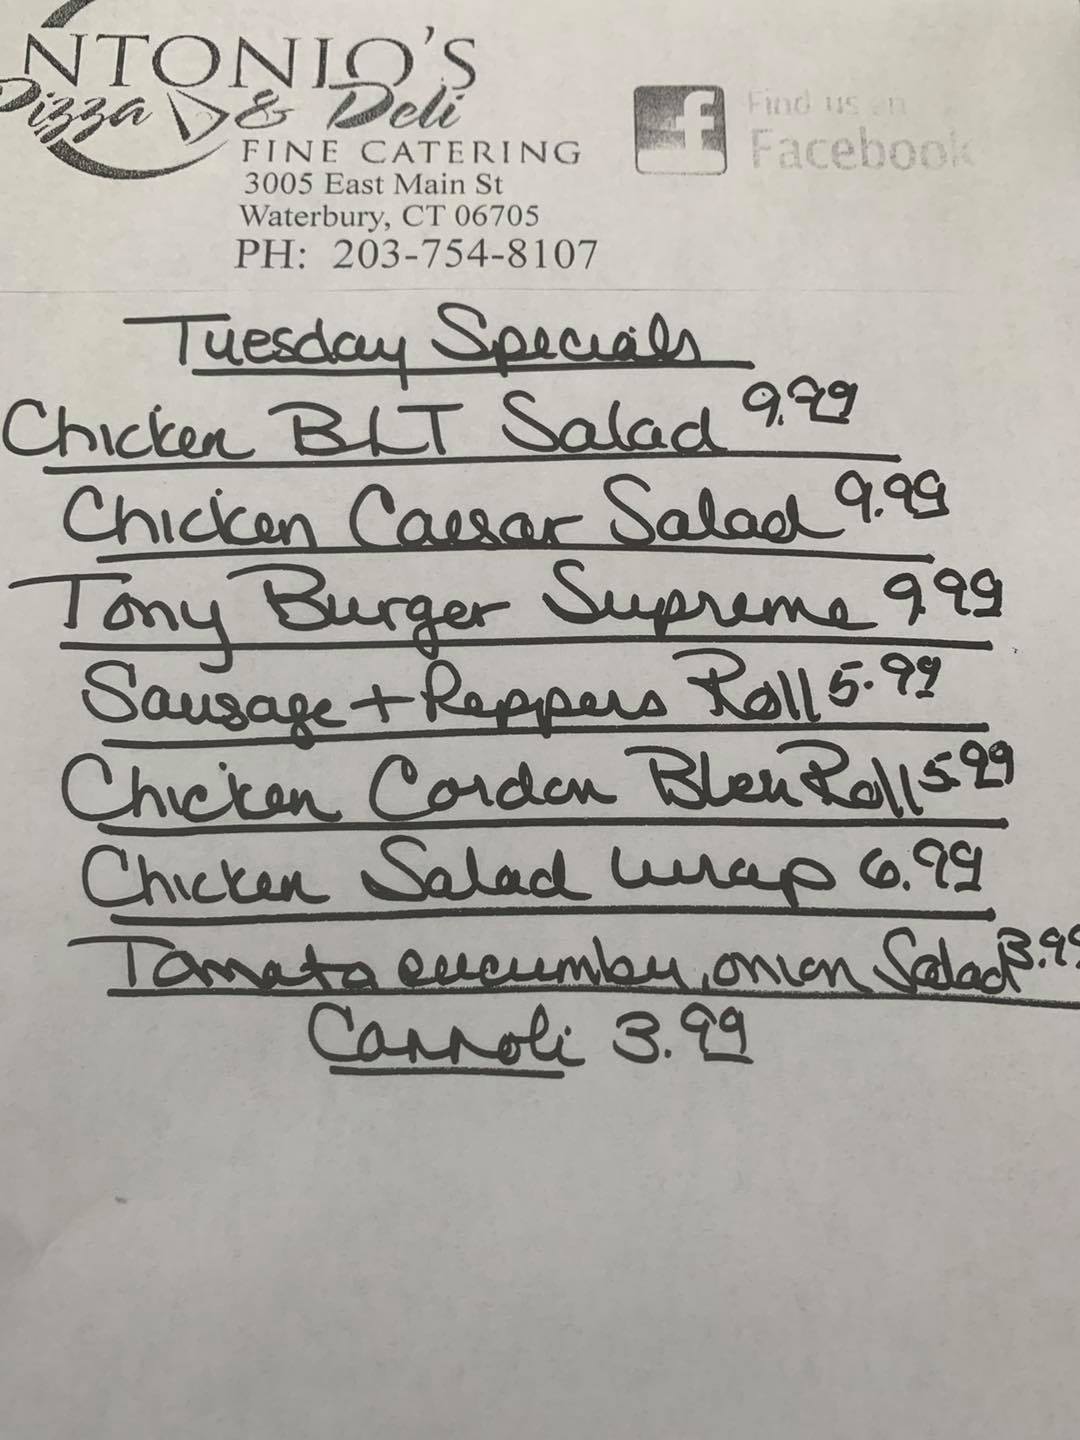 NTONIO'S
Pizza & Deli
FINE CATERING
3005 East Main St
Waterbury, CT 06705
PH: 203-754-8107
Find us on
Facebook
Tuesday Specials
Chicken BLT Salad 9.99
Chicken Caesar Salad 9.99
Tony Burger Supreme 9.99
Sausage + Peppers Roll 5.99
Chicken Cordon Bleu Roll 5.99
Chicken Salad Wrap 6.99
Tomato cucumber, onion Salad 3.99
Cannoli 3.99